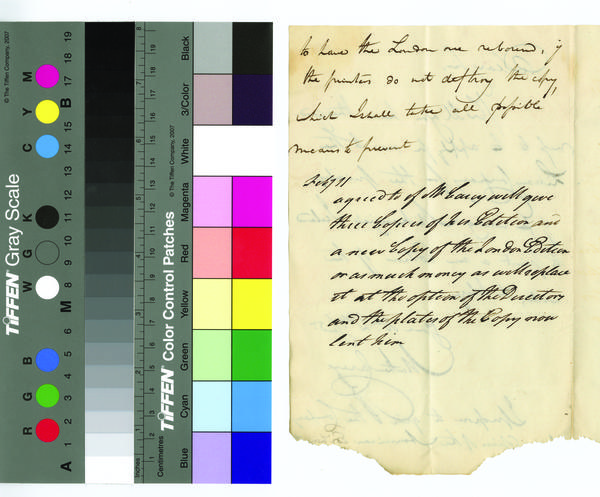 © The Tiffen Company, 2007
TIFFEN Gray Scale
R G B W G K C Y M
A 1 2 3 4 5 6 M 8 9 10 11 12 13 14 15 B 17 18 19
Inches
Centimetres
TIFFEN Color Control Patches
© The Tiffen Company, 2007
Blue
Cyan
Green
Yellow
Red
Magenta
White
3/Color
Black
to have the London one rebound, if
the printers do not destroy the copy,
which I shall take all possible
means to prevent
agreed to if Mr Carey will give
three Copies of his Edition and
a new Copy of the London Edition
or as much money as will replace
it at the option of the Directors
and the plates of the Copy now
lent him